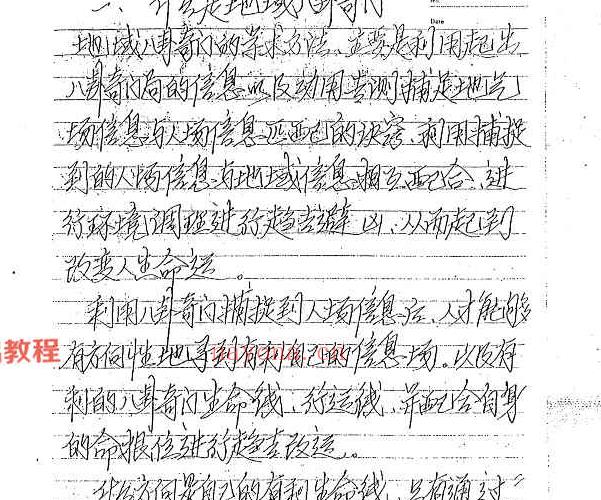 一、什么是地域八卦奇门
地域八卦奇门的学术方法、主要是利用起出
八卦奇门局的信息以及动用专测捕足地气
场信息与人场信息匹配的诀窍、利用捕捉
到的人场信息与地域信息相互配合、进
行环境调理进行趋吉避凶、从而起到
改变人生命运。
利用八卦奇门捕捉到人场信息后、人才能够
有方向性地寻到有利自己的信息场。以及有
利的八卦奇门生命线、行运线、并配合自身
的命根位进行趋吉改运。
什么方向是自己的有利生命线、只有通过
教程
Date